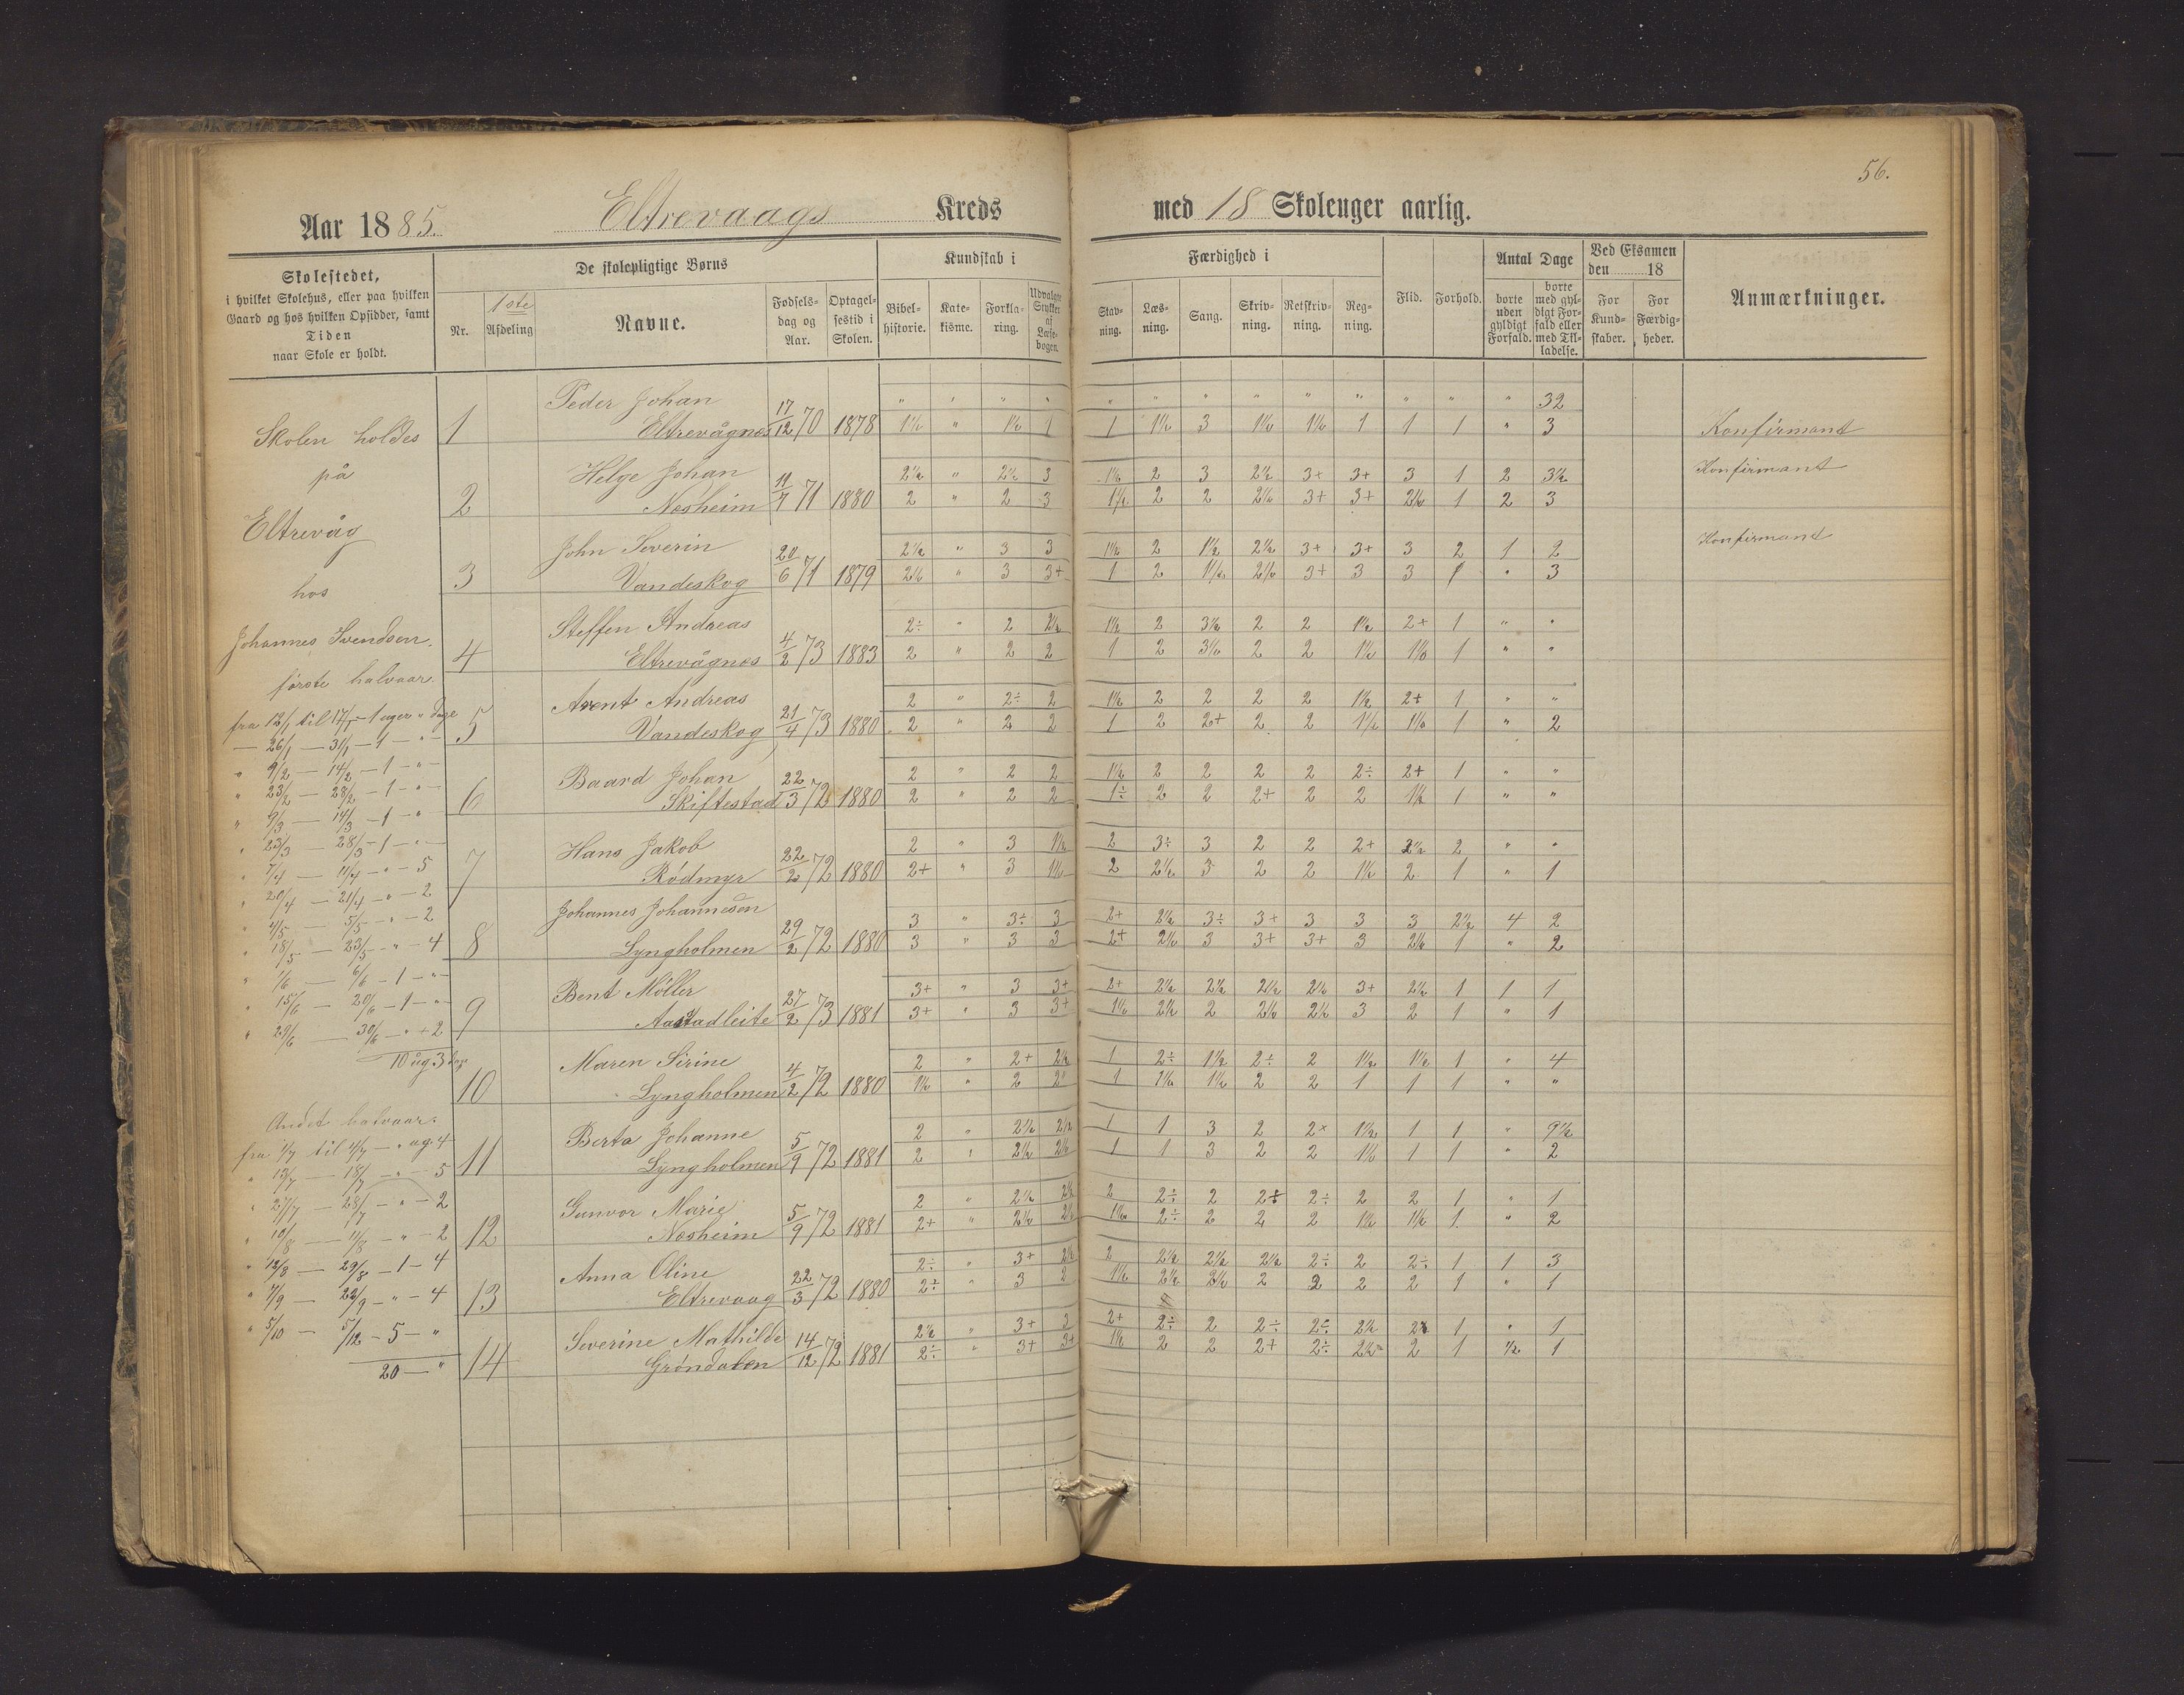 56.
Aar 1885. Eltrevaags Kreds med 18 Skoleuger aarlig.
Skolestedet,
i hvilket Skolehus, eller paa hvilken
Gaard og hos hvilken Opsidder, samt
Tiden
naar Skole er holdt.
De skolepligtige Børns
Nr.
1ste
Afdeling
Navne.
Fødsels-
dag og
Aar.
Optagel-
sestid i
Skolen.
Kundskab i
Bibel-
historie.
Kate-
kisme.
Forkla-
ring.
Udvalgte
Stykker
af
Læse-
bogen.
Færdighed i
Stav-
ning.
Læs-
ning.
Sang.
Skriv-
ning.
Retskriv-
ning.
Reg-
ning.
Flid.
Forhold.
Antal Dage
borte
uden
gyldigt
Forfald.
borte
med gyl-
digt For-
fald eller
med Til-
ladelse.
Ved Eksamen
den 18
For
Kund-
skaber.
For
Færdig-
heder.
Anmærkninger.
Skolen holdes
på
Eltrevåg
hos
Johannes Svendsen.
første halvaar.
fra 12/1 til 17/1 – 1 uger " dage
— 26/1 — 31/1 – 1 – " –
" 9/2 — 14/2 – 1 – " –
" 23/2 — 28/2 – 1 – " –
" 9/3 — 14/3 – 1 – "
" 23/3 — 28/3 – 1 – " –
" 7/4 — 11/4 – " – 5
" 20/4 — 21/4 – " – 2
" 4/5 — 5/5 – " – 2
" 18/5 — 23/5 – " – 4
" 1/6 — 6/6 – 1 – " –
" 15/6 — 20/6 – 1 – " –
" 29/6 — 30/6 – " + 2
10 ug. 3 dage
Andet halvaar.
fra 1/7 til 4/7 – " ug. 4
" 13/7 — 18/7 – " – 5
" 27/7 — 28/7 – " – 2
" 10/8 — 11/8 – " – 2
" 12/8 — 29/8 – 1 – 4
" 7/9 — 22/9 – " – 4
" 5/10 — 5/12 – 5 – "
20 — "
1 Peder Johan " " " " " " " " " " " " " 32
Eltrevågnes 17/12 70 1878 1½ " 1½ 1 1 1½ 3 1½ 1½ 1 1 1 " 3 Konfirmant
2 Helge Johan 2½ " 2½ 3 1½ 2 3 2½ 3+ 3+ 3 1 2 3½ Konfirmant
Nesheim 11/7 71 1880 2 " 2 3 1½ 2 2 2½ 3+ 3+ 2½ 1 2 3
3 John Severin 2½ " 3 3 1½ 2 1½ 2½ 3+ 3+ 3 2 1 2 Konfirmant
Vandeskog 20/6 71 1879 2½ " 3 3+ 1 2 1½ 2½ 3+ 3 3 1 " 3
4 Steffen Andreas 2÷ " 2 2½ 1½ 2 3½ 2 2 1½ 2+ 1 " "
Eltrevågnes 4/2 73 1883 2 " 2 2 1 2 3½ 2 2 1½ 1½ 1 " "
5 Arent Andreas 2 " 2÷ 2 1½ 2 2 2 2 1½ 2+ 1 " "
Vandeskog 21/4 73 1880 2 " 2 2 1 2 2+ 2 2 1½ 1½ 1 " 2
6 Baard Johan 2 " 2 2 1½ 2 2 2 2 2÷ 2+ 1 " "
Skiftestad 22/3 72 1880 2 " 2 2 1÷ 2 2 2+ 2 2 1½ 1 " "
7 Hans Jakob 2 " 3 1½ 2 3÷ 3 2 2 2+ 2½ 2 " "
Rødmyr 22/2 72 1880 2+ " 3 1½ 2 2½ 3 2 2 1½ 2 1 " 1
8 Johannes Johannesen 3 " 3÷ 3 2+ 2½ 3÷ 3+ 3 3 3 2½ 4 2
Lyngholmen 29/2 72 1880 3 " 3 3 2+ 2½ 3 3+ 3+ 3 2½ 1 " 2
9 Bent Møller 3+ " 3 3+ 2+ 2½ 2½ 2½ 2½ 3+ 2½ 1 1 1
Aastadleite 27/2 73 1881 3+ " 3 3+ 1½ 2½ 2 2½ 2½ 3 2 1 " 1
10 Maren Sirine 2 " 2+ 2½ 1 2÷ 1½ 2÷ 2 1½ 1½ 1 " 4
Lyngholmen 4/2 72 1880 1½ " 2 2 1 1½ 1½ 2 2 1 1 1 " "
11 Berta Johanne 2 " 2½ 2½ 1 1 3 2 2+ 1½ 1 1 " 9½
Lyngholmen 5/9 72 1881 2 " 2½ 2½ 1 1 3 2 2 1½ 1 1 " 2
12 Gunvor Marie 2 " 2½ 2½ 2 2÷ 2 2÷ 2÷ 2 2 1 " 1
Nesheim 5/9 72 1881 2+ " 2½ 2½ 1½ 2÷ 2 2 2 1½ 1½ 1 " 2
13 Anna Oline 2÷ " 3+ 2½ 2 2½ 2½ 2½ 2÷ 2 2÷ 1 1 3
Eltrevaag 22/3 72 1880 2÷ " 3 2 1½ 2½ 2½ 2 2 2 2 1 " 1
14 Severine Mathilde 2½ " 3+ 2 2+ 2÷ 2 2÷ 2÷ 2½ 2 1 " 1
Grøndalen 14/12 72 1881 2÷ " 3+ 3+ 1½ 2 2 2+ 2÷ 2½ 2 1 ½ 1